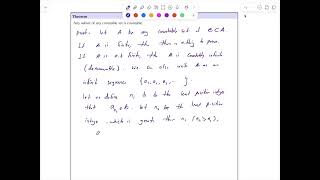 Theorem
Any subset of any countable set is countable.
Proof. Let A be any countable set & B ⊂ A.
If A is finite, then there is nothing to prove.
If A is not finite, then A is countably infinite
(denumerable). we can also write A as an
infinite sequence {a₁, a₂, a₃, ... }
Let us define n₁ to be the least positive integer
that a_n₁ ∈ B. Let n₂ be the least positive
integer which is greater than n₁ (n₂ > n₁),